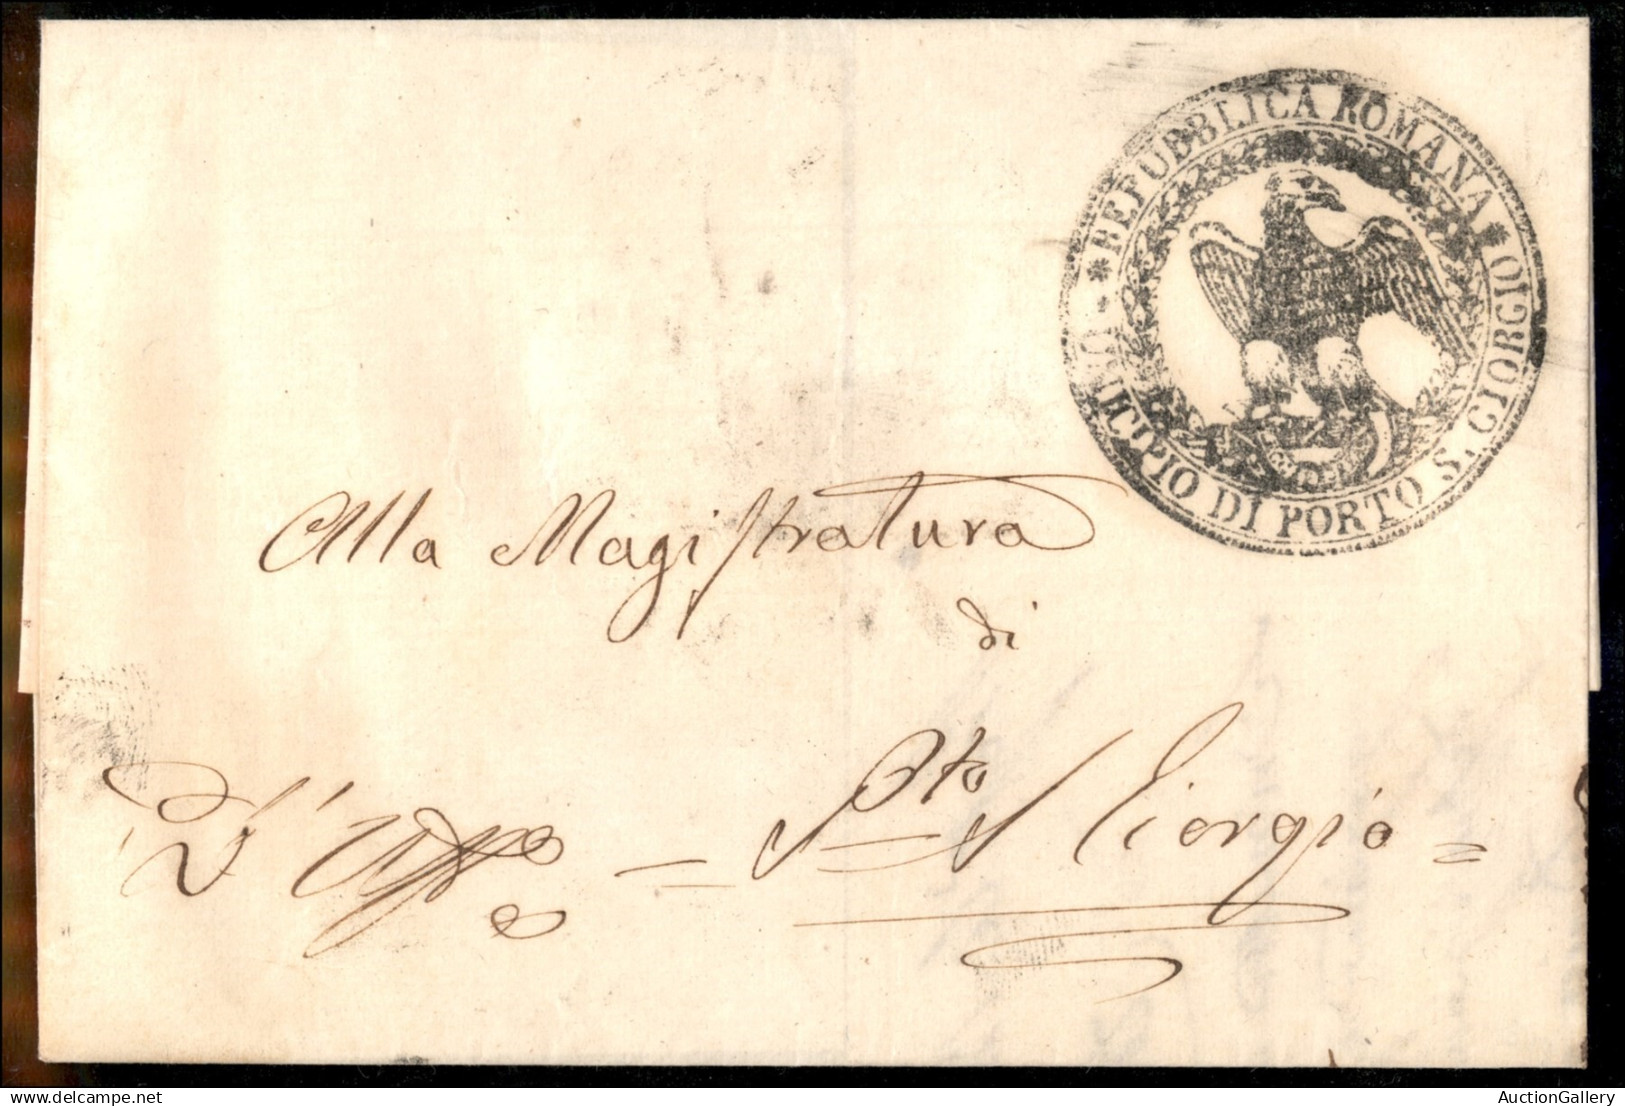 * REPUBBLICA ROMANA *
MUNICIPIO DI PORTO S. GIORGIO
Alla Magistratura
di
D'Uffo = Pto S Giorgio =
AuctionGallery